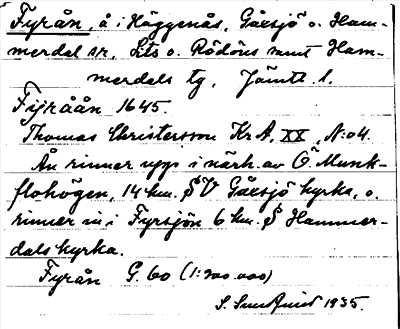 Fyrån, å i Häggenås, Gåxsjö o. Ham-
merdal sn, Lits o. Rödöns samt Ham-
merdals tg, Jämtl. l.
Fijråån 1645.
Thomas Christersson Kr A, XX, N:o 4.
Ån rinner upp i närh. av Ö. Munk-
flohögen, 14 km. S V Gåxsjö kyrka, o.
rinner in i Fyrsjön 6 km. S Hammer-
dals kyrka.
Fyrån G. 60 (1:200.000)
S. Sundqvist 1935.